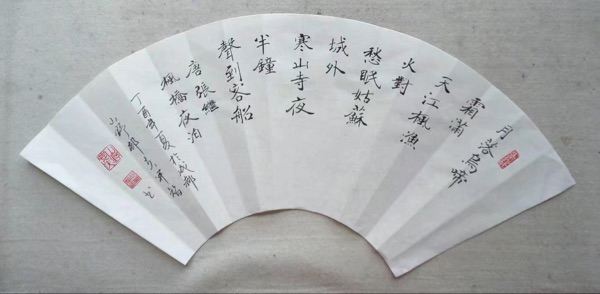 月落烏啼
霜滿
天江楓漁
火對
愁眠姑蘇
城外
寒山寺夜
半鐘
聲到客船
唐張繼
楓橋夜泊
丁酉年夏於成都
書